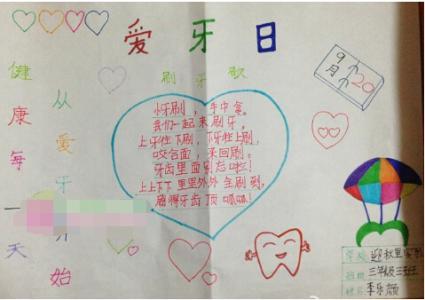 爱牙日
刷牙歌
健康每一天
从爱牙开始
小牙刷，手中拿。
我们一起来刷牙，
上牙往下刷，下牙往上刷，
咬合面，来回刷。
牙齿里面别忘啦！
上上下下里里外外全刷到，
磨得牙齿顶呱呱！
9月20
学校 迎秋里
班级 三年级三班
姓名 李乐颜